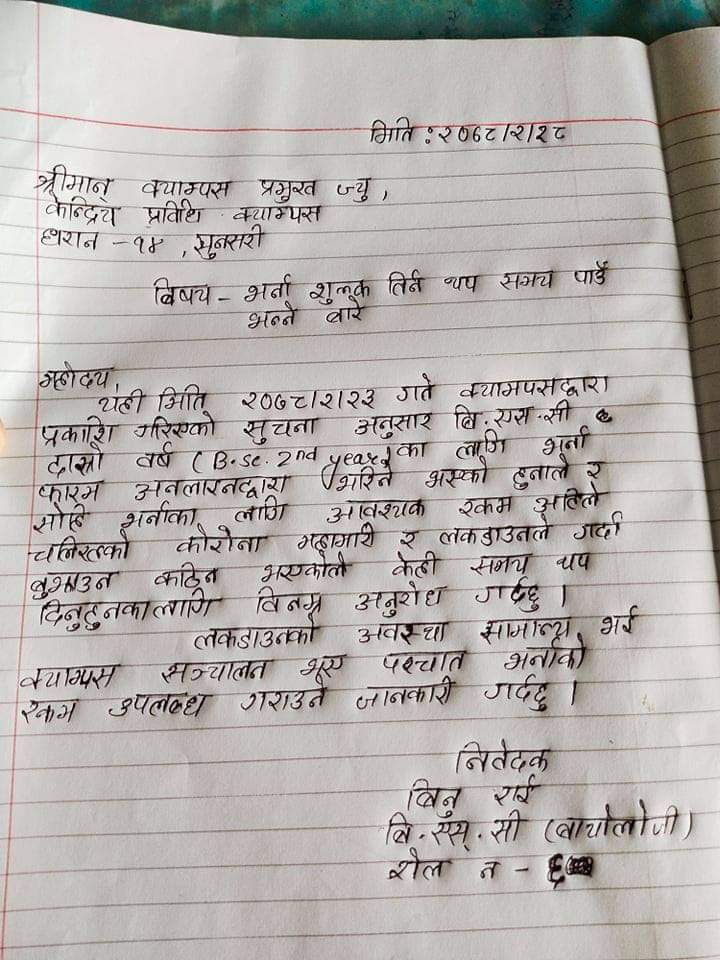 मिति : २०७८/२/२८
श्रीमान् क्याम्पस प्रमुख ज्यु,
केन्द्रिय प्रविधि क्याम्पस
धरान - १४, सुनसरी
बिषय - भर्ना शुल्क तिर्न थप समय पाउँ
भन्ने बारे
महोदय,
यही मिति २०७८/२/२३ गते क्याम्पसद्वारा
प्रकाशि गरिएको सुचना अनुसार बि.एस.सी
दोस्रो वर्ष (B.sc. 2nd year) का लागि भर्ना
फारम अनलाइनद्वारा भरिने भएको हुनाले र
सोहि भर्नाका लागि आवश्यक रकम अहिले
चलिरहेको कोरोना महामारी र लकडाउनले गर्दा
बुझाउन कठिन भएकोले केही समय थप
दिनुहुनका लागि विनम्र अनुरोध गर्दछु ।
लकडाउनको अवस्था सामान्य भई
क्याम्पस सञ्चालन भए पश्चात भर्नाको
रकम उपलब्ध गराउने जानकारी गर्दछु ।
निवेदक
बिनु राई
बि.एस्.सी (बायोलोजी)
रोल न - ६